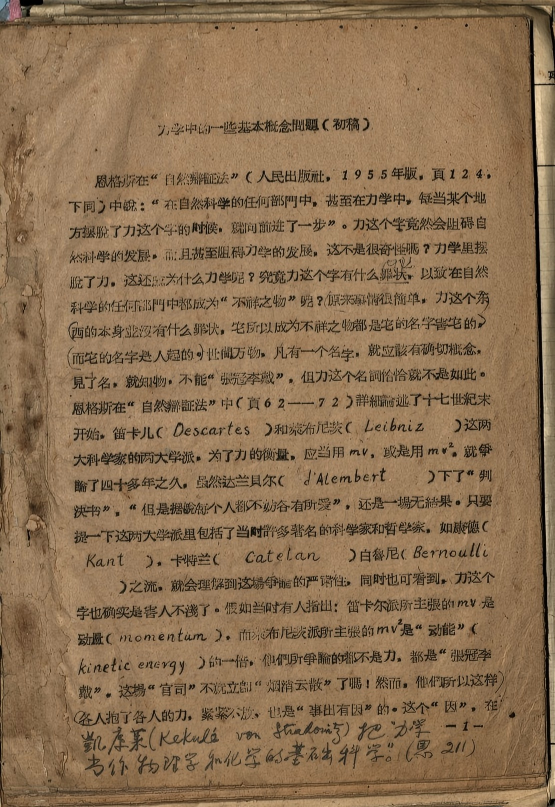 力学中的一些基本概念問題（初稿）
恩格斯在“自然辯証法”（人民出版社，1955年版，頁124，
下同）中說：“在自然科学的任何部門中，甚至在力学中，每当某个地
方摆脫了力这个字的时候，就向前进了一步”。力这个字竟然会阻碍自
然科学的发展，而且甚至阻碍力学的发展，这不是很奇怪嗎？力学里摆
脫了力，这还成为什么力学呢？究竟力这个字有什么罪状，以致在自然
科学的任何部門中都成为“不祥之物”呢？原来事情很簡单，力这个东
西的本身並沒有什么罪状，它所以成为不祥之物都是它的名字害它的，
而它的名字是人起的。世間万物，凡有一个名字，就应該有确切概念，
見了名，就知物，不能“張冠李戴”，但力这个名詞恰恰就不是如此。
恩格斯在“自然辯証法”中（頁62——72）詳細論述了十七世紀末
开始，笛卡儿（Descartes）和萊布尼茨（Leibniz）这两
大科学家的两大学派，为了力的衡量，应当用mv，或是用mv²，就爭
論了四十多年之久，虽然达兰貝尔（d'Alembert）下了“判
决书”，“但是据說每个人都不妨各有所爱”，还是一場无結果。只要
提一下这两大学派里包括了当时許多著名的科学家和哲学家，如康德（
Kant），卡特兰（Catelan）白魯尼（Bernoulli
）之流，就会理解到这場爭論的严肃性，同时也可看到，力这个
字也确实是害人不浅了。假如当时有人指出：笛卡尔派所主張的mv是
动量（momentum），而萊布尼茨派所主張的mv²是“动能”（
kinetic energy）的一倍，他們所爭論的都不是力，都是“張冠李
戴”，这場“官司”不就立即“烟消云散”了嗎！然而，他們所以这样
各人抱了各人的力，紧紧不放，也是“事出有因”的。这个“因”，在
凱庫萊（Kekulé von Stradonitz）把“力学
－1－
当作物理学和化学的基础科学”。（恩211）